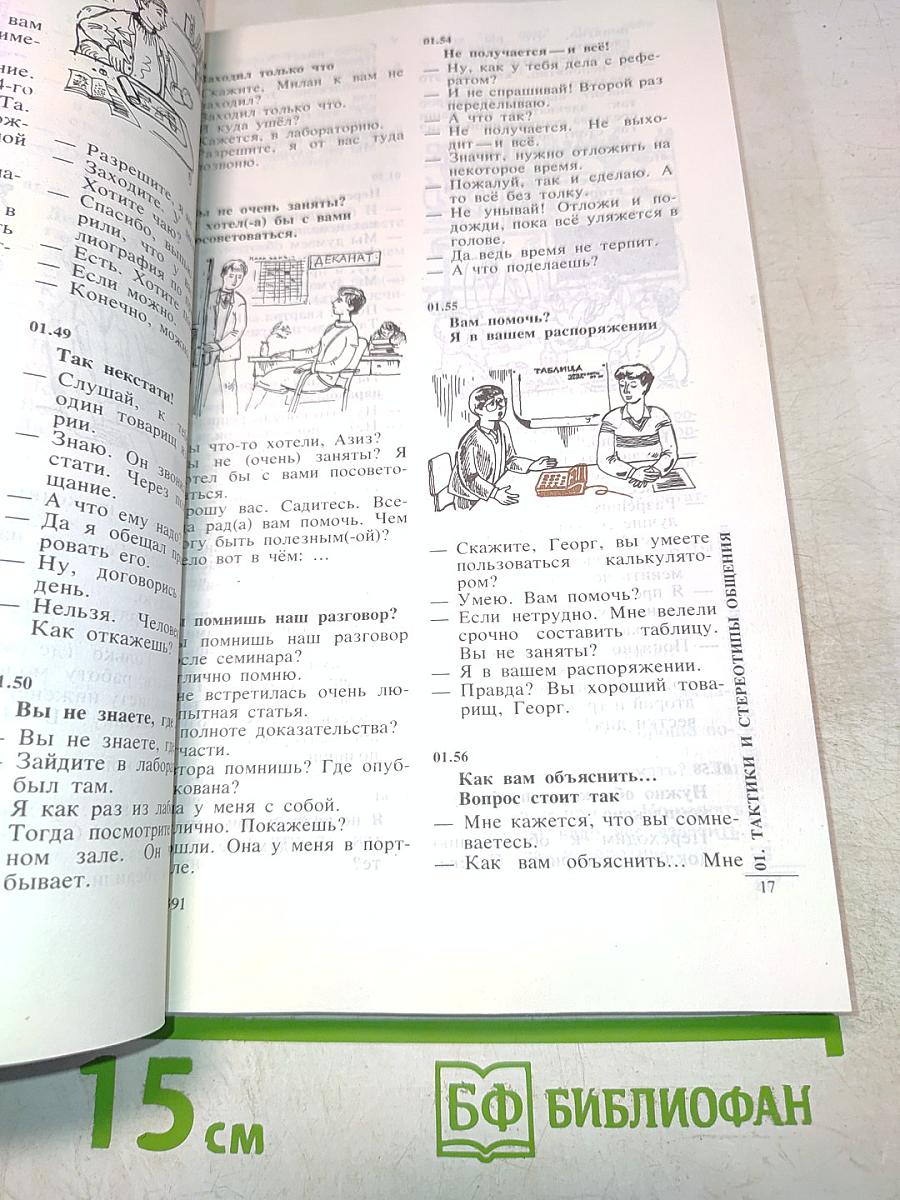 вам
име-
ние.
4-го
Та.
ной
в
— Разрешите
— Заходите. У
— Хотите чаю?
— Спасибо,
рили, что у
лиография по
— Есть. Хотите
— Если можно.
— Конечно, можно
01.49
Так некстати!
— Слушай, к
один товарищ
рии.
— Знаю. Он
стати. Через
щание.
— А что ему надо
— Да я обещал
ровать его.
— Ну, договорись
день.
— Нельзя. Челове
Как откажешь?
1.50
Вы не знаете, где
— Вы не знаете, где
— Зайдите в лабора
был там.
Я как раз из лаб
Тогда посмотрите
ном зале. Он
бывает.
аходил только что
кажите, Милан к вам не
аходил?
аходил только что.
куда ушёл?
ажется, в лабораторию.
азрешите, я от вас туда
озвоню.
ы не очень заняты?
хотел(-а) бы с вами
осоветоваться.
ДЕКАНАТ
ы что-то хотели, Азиз?
ы не (очень) заняты? Я
отел бы с вами посовето-
аться.
рошу вас. Садитесь. Все-
а рад(а) вам помочь. Чем
огу быть полезным(-ой)?
ело вот в чём: ...
помнишь наш разговор?
ы помнишь наш разговор
сле семинара?
лично помню.
не встретилась очень лю-
пытная статья.
полноте доказательства?
части.
тора помнишь? Где опуб-
кована?
а у меня с собой.
лично. Покажешь?
шли. Она у меня в порт-
ле.
391
01.54
Не получается — и всё!
— Ну, как у тебя дела с рефе-
ратом?
— И не спрашивай! Второй раз
переделываю.
— А что так?
— Не получается. Не выхо-
дит — и всё.
— Значит, нужно отложить на
некоторое время.
— Пожалуй, так и сделаю. А
то всё без толку.
— Не унывай! Отложи и по-
дожди, пока всё уляжется в
голове.
— Да ведь время не терпит.
— А что поделаешь?
01.55
Вам помочь?
Я в вашем распоряжении
ТАБЛИЦА
— Скажите, Георг, вы умеете
пользоваться калькулято-
ром?
— Умею. Вам помочь?
— Если нетрудно. Мне велели
срочно составить таблицу.
Вы не заняты?
— Я в вашем распоряжении.
— Правда? Вы хороший това-
рищ, Георг.
01.56
Как вам объяснить...
Вопрос стоит так
— Мне кажется, что вы сомне-
ваетесь.
— Как вам объяснить... Мне
01. ТАКТИКИ И СТЕРЕОТИПЫ ОБЩЕНИЯ
17
15 см
БФ БИБЛИОФАН